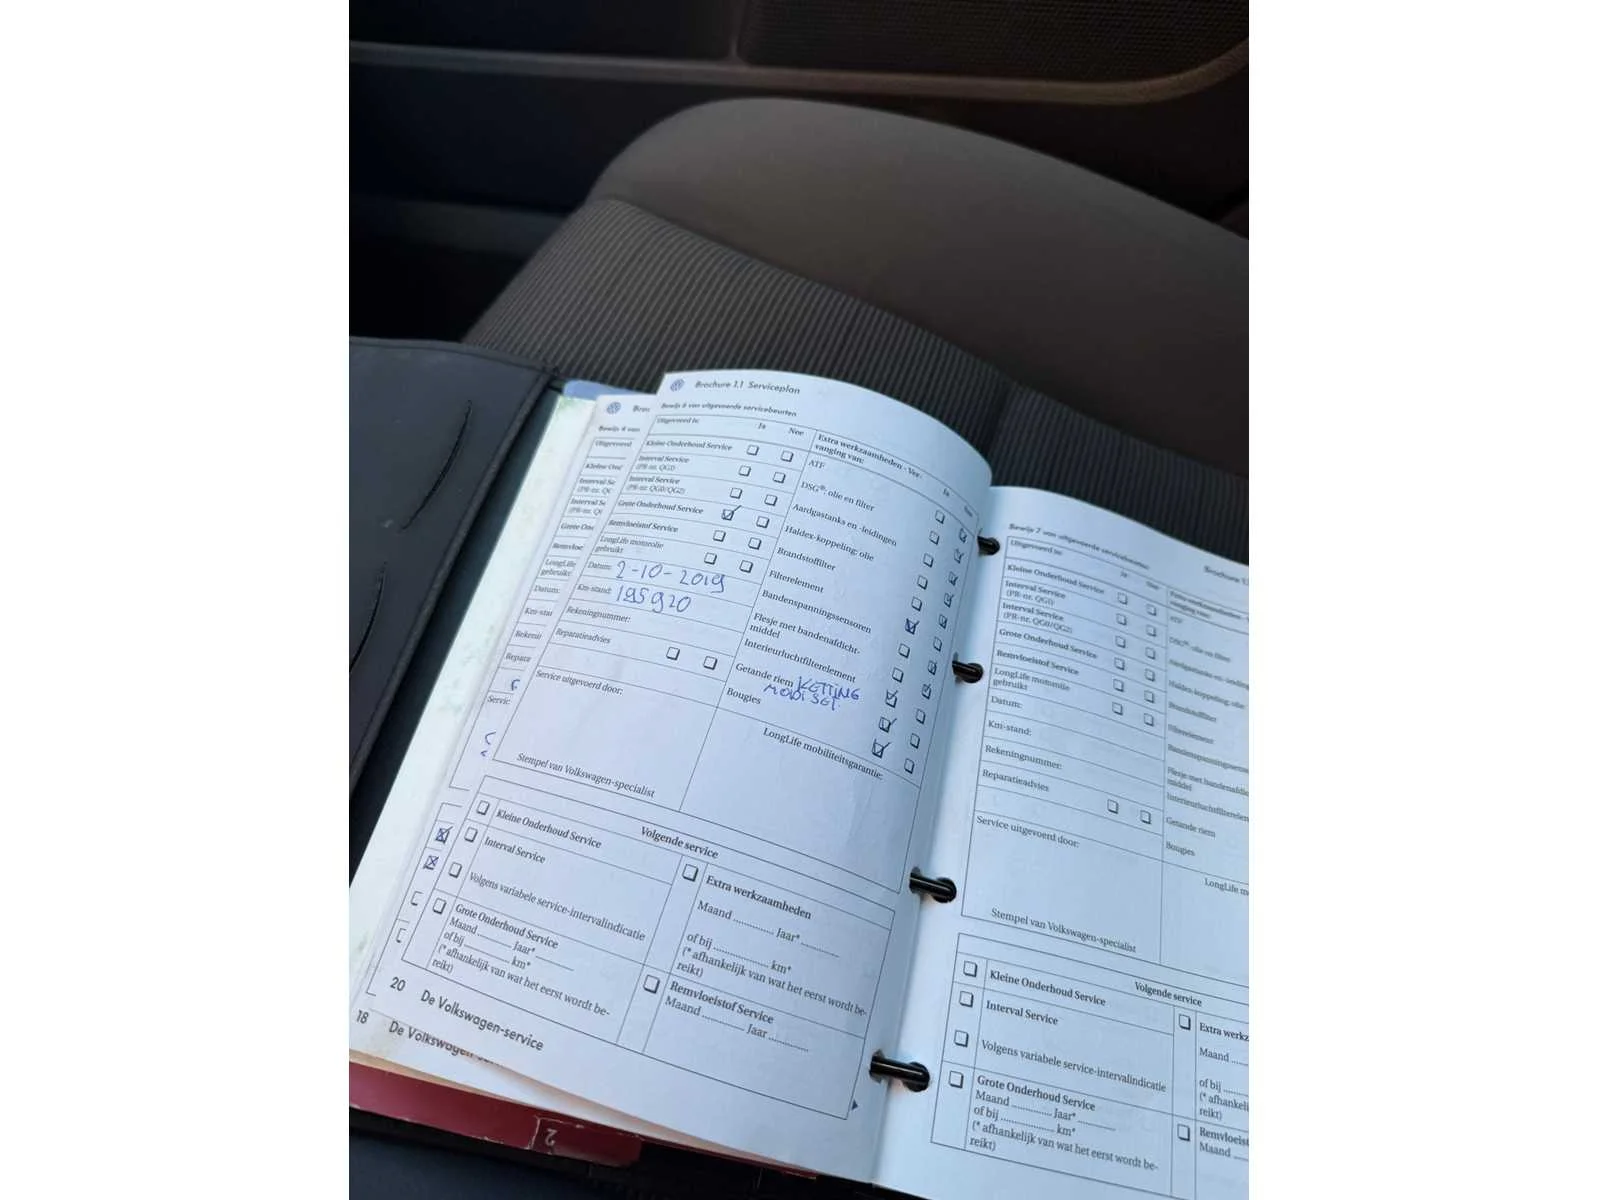 Brochure 1.1 Serviceplan
Bewijs 6 van uitgevoerde servicebeurten
Uitgevoerd is: Ja Nee
Kleine Onderhoud Service
Interval Service
(PR-nr. QG1)
Interval Service
(PR-nr. QG0/QG2)
Grote Onderhoud Service
Remvloeistof Service
LongLife motorolie
gebruikt
Datum: 2-10-2019
Km-stand: 195920
Rekeningnummer:
Reparatieadvies
Service uitgevoerd door:
Stempel van Volkswagen-specialist
Extra werkzaamheden - Ver-
vanging van: Ja
ATF
DSG®: olie en filter
Aardgastanks en -leidingen
Haldex-koppeling: olie
Brandstoffilter
Filterelement
Bandenspanningssensoren
Flesje met bandenafdicht-
middel
Interieurluchtfilterelement
Getande riem KETTING
Bougies
LongLife mobiliteitsgarantie:
Volgende service
Kleine Onderhoud Service
Interval Service
Volgens variabele service-intervalindicatie
Grote Onderhoud Service
Maand ............ Jaar*............
of bij ............ km*
(* afhankelijk van wat het eerst wordt be-
reikt)
Extra werkzaamheden
Maand ............ Jaar*............
of bij ............ km*
(* afhankelijk van wat het eerst wordt be-
reikt)
Remvloeistof Service
Maand ............ Jaar ............
20 De Volkswagen-service
18 De Volkswagen
2
Bewijs 7 van uitgevoerde servicebeurten
Uitgevoerd is: Ja Nee
Kleine Onderhoud Service
Interval Service
(PR-nr. QG1)
Interval Service
(PR-nr. QG0/QG2)
Grote Onderhoud Service
Remvloeistof Service
LongLife motorolie
gebruikt
Datum:
Km-stand:
Rekeningnummer:
Reparatieadvies
Service uitgevoerd door:
Stempel van Volkswagen-specialist
ATF
DSG®: olie en filter
Aardgastanks en -leiding
Haldex-koppeling: olie
Brandstoffilter
Filterelement
Bandenspanningssenso
Flesje met bandenafdic
middel
Interieurluchtfilterelen
Getande riem
Bougies
LongLife m
Volgende service
Kleine Onderhoud Service
Interval Service
Volgens variabele service-intervalindicatie
Grote Onderhoud Service
Maand ............ Jaar*............
of bij ............ km*
(* afhankelijk van wat het eerst wordt be-
reikt)
Extra werkz
Maand
of bij
(* afhankeli
reikt)
Remvloeist
Maand